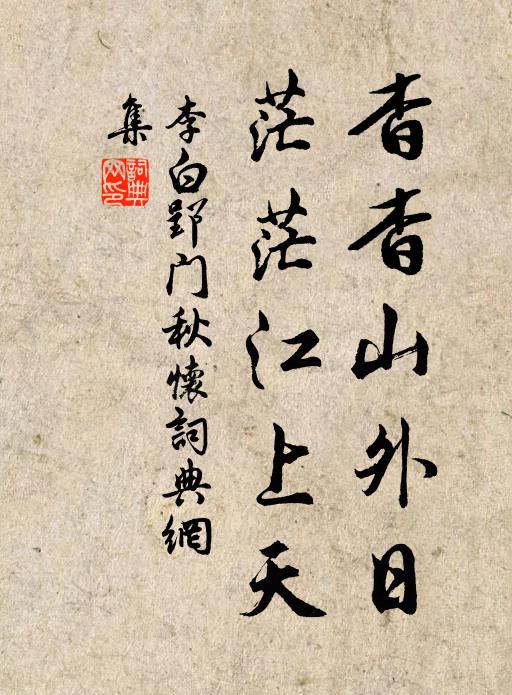 杳杳山外日
茫茫江上天
李白郢门秋懷詞典網
集
詞典
网印